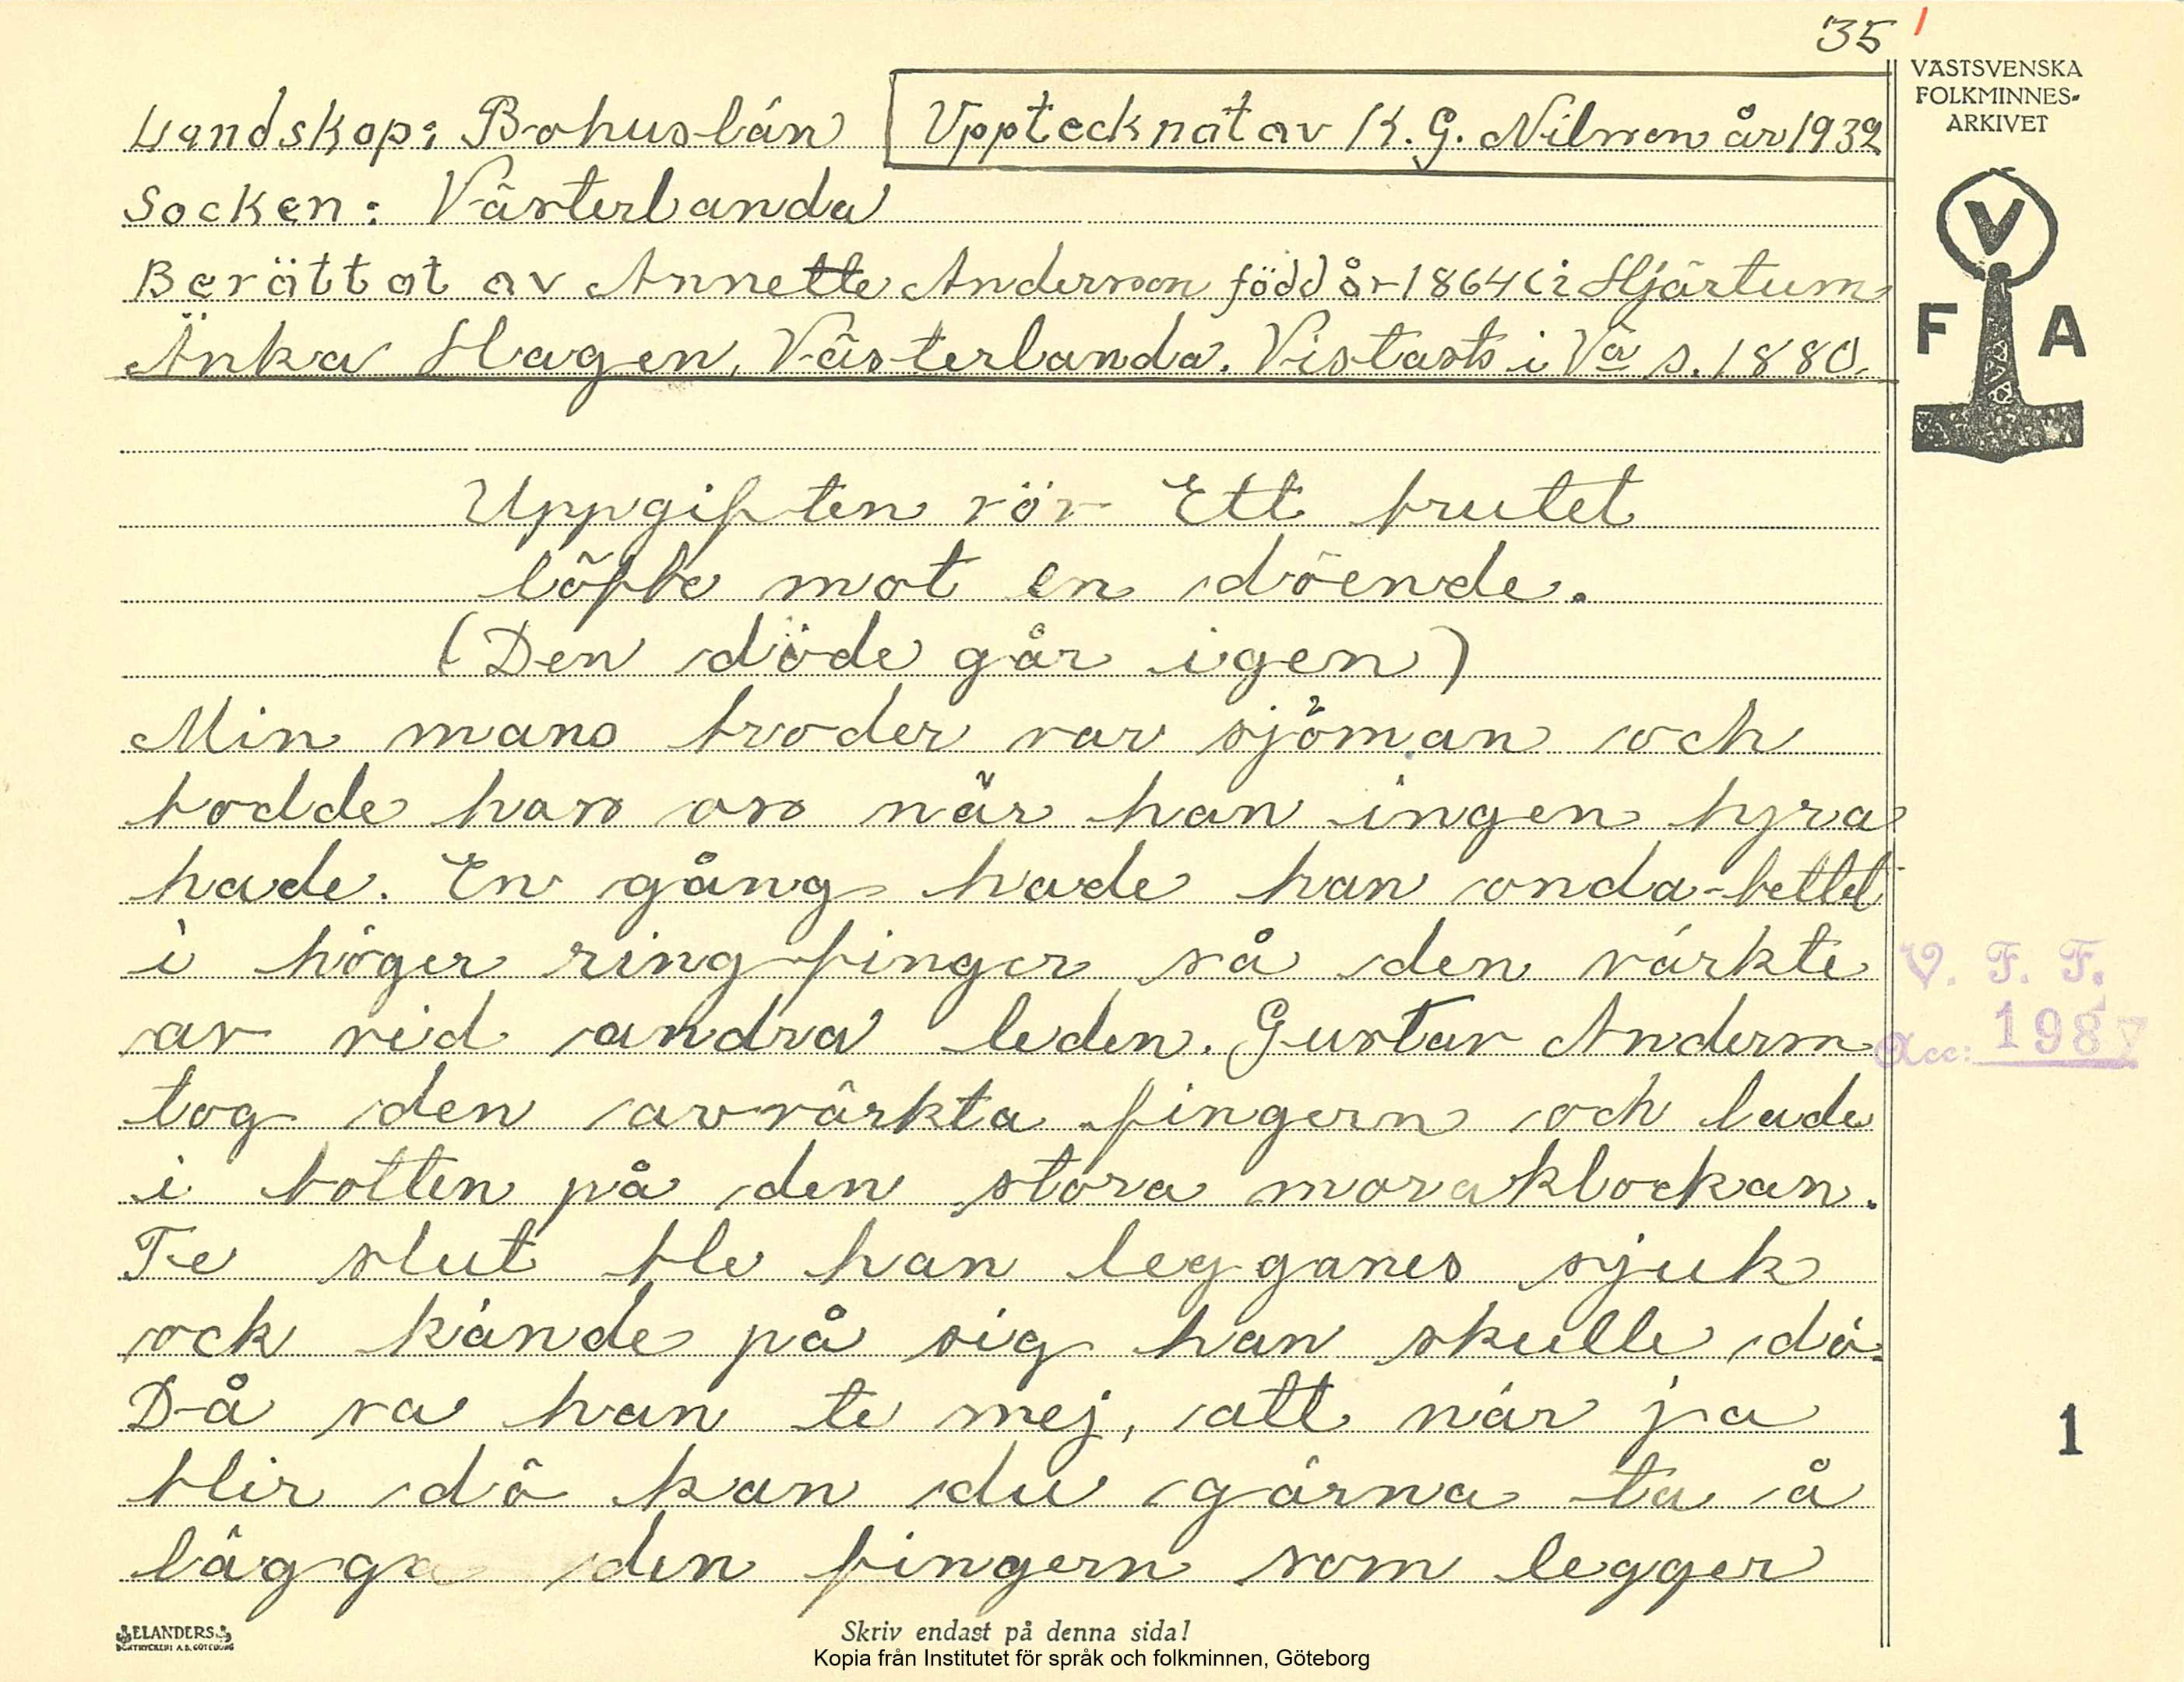 35 1
VÄSTSVENSKA
FOLKMINNES-
ARKIVET
Landskap: Bohuslän
Upptecknat av K. G. Nilsson år 1932
Socken: Västerlanda
Berättat av Annette Andersson född år 1864 (i Hjärtum
Änka Hagen, Västerlanda. Vistats i Va s. 1880.
V
F A
Uppgiften rör Ett brutet
löfte mot en döende.
(Den döde går igen)
Min mans broder var sjöman och
bodde hos oss när han ingen hyra
hade. En gång hade han onda-bettet
i höger ringfinger så den värkte
av vid andra leden. Gustav Anderson
tog den avvärkta fingern och lade
i botten på den stora moraklockan.
Te slut ble han legganes sjuk
ock kände på sig han skulle dö.
Då sa han te mej, att när ja
blir dö kan du gärna ta å
lägga den fingern som legger
V. F. F.
Acc: 1987
1
ELANDERS
BOKTRYCKERI A.B. GÖTEBORG
Skriv endast på denna sida!
Kopia från Institutet för språk och folkminnen, Göteborg